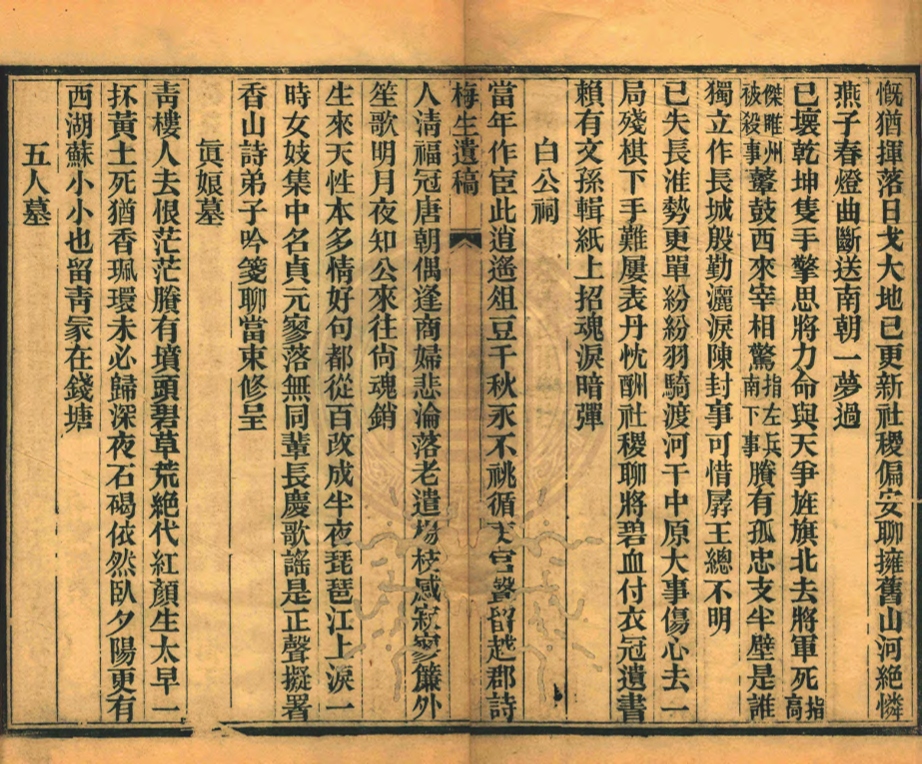 慨猶揮落日戈大地已更新社稷偏安聊擁舊山河絶憐
燕子春燈曲斷送南朝一夢過
已壞乾坤隻手擎思將力命與天爭旌旗北去將軍死指高
傑睢州被殺事鼙鼓西來宰相驚指左兵南下事賸有孤忠支半壁是誰
獨立作長城殷勤灑淚陳封事可惜孱王總不明
已失長淮勢更單紛紛羽騎渡河干中原大事傷心去一
局殘棋下手難屢表丹忱酬社稷聊將碧血付衣冠遺書
賴有文孫輯紙上招魂淚暗彈
白公祠
當年作宦此逍遙俎豆千秋永不祧循吏官聲留越郡詩
梅生遺稿
人淸福冠唐朝偶逢商婦悲淪落老遣楊枝感寂寥簾外
笙歌明月夜知公來往尙魂銷
生來天性本多情好句都從百改成半夜琵琶江上淚一
時女妓集中名貞元寥落無同輩長慶歌謠是正聲擬署
香山詩弟子吟箋聊當束修呈
眞娘墓
靑樓人去恨茫茫賸有墳頭碧草荒絶代紅顏生太早一
抔黃土死猶香珮環未必歸深夜石碣依然臥夕陽更有
西湖蘇小小也留靑冢在錢塘
五人墓